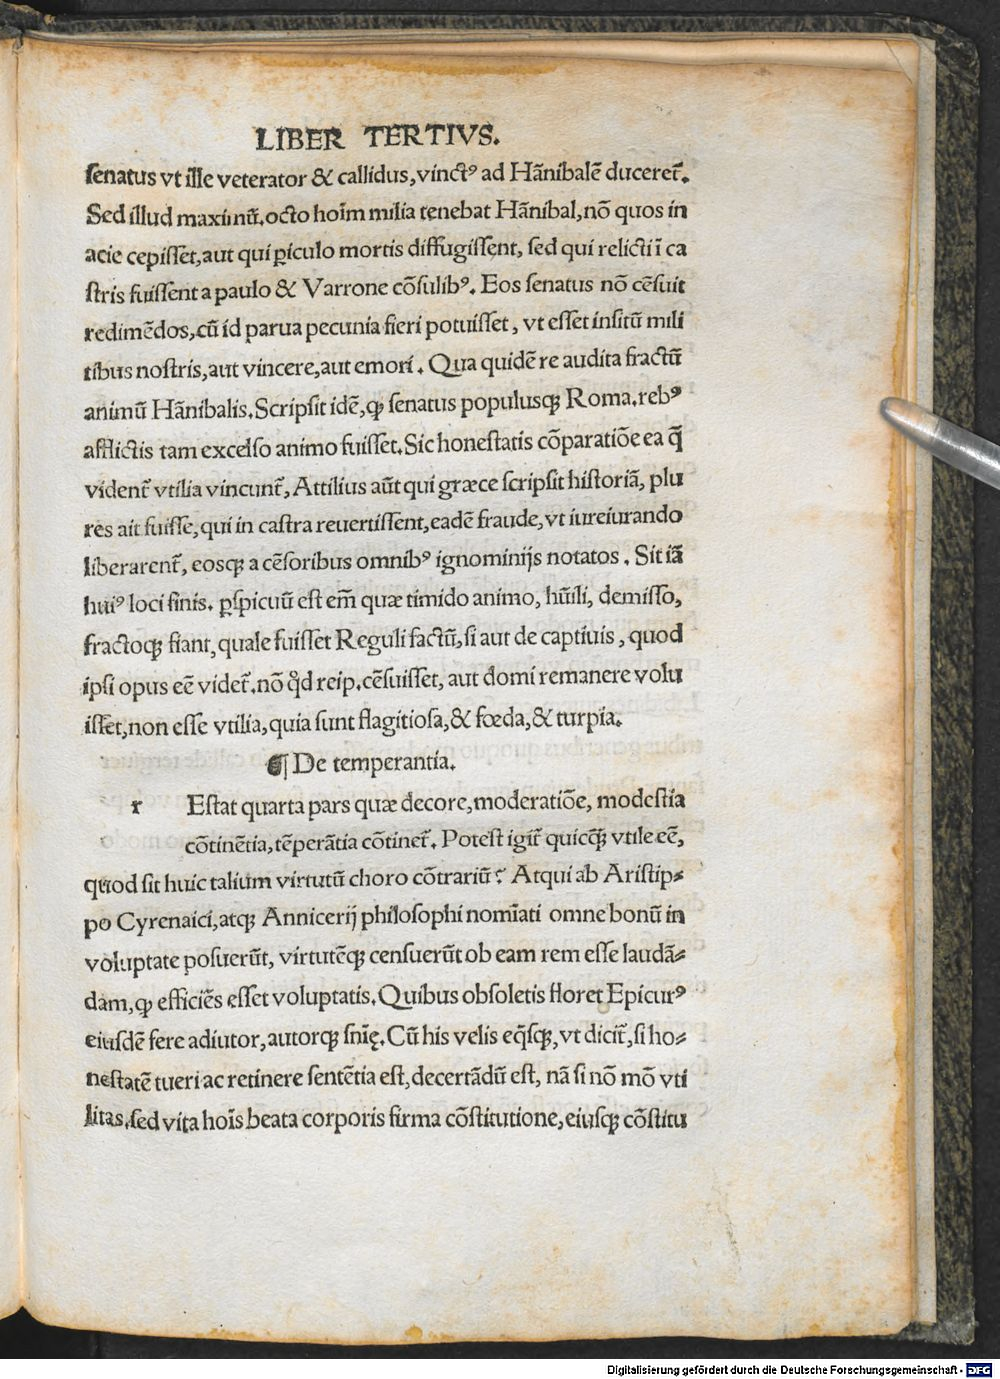 LIBER TERTIVS.
ſenatus vt ille veterator & callidus, vinctꝰ ad Hãnibalẽ duceret̃.
Sed illud maximũ. octo hoĩm milia tenebat Hãnibal, nõ quos in
acie cepiſſet, aut qui ꝑiculo mortis diffugiſſent, ſed qui relicti ĩ ca
ſtris fuiſſent a paulo & Varrone cõſulibꝰ. Eos ſenatus nõ cẽſuit
redimẽdos, cũ id parua pecunia fieri potuiſſet, vt eſſet inſitũ mili
tibus noſtris, aut vincere, aut emori. Qua quidẽ re audita fractũ
animũ Hãnibalis. Scripſit idẽ, ꝙ ſenatus populusqꝫ Roma. rebꝰ
afflictis tam excelſo animo fuiſſet. Sic honeſtatis cõparatiõe ea q̃
vident̃ vtilia vincunt̃, Attilius aũt qui græce ſcripſit hiſtoriã, plu
res ait fuiſſe, qui in caſtra reuertiſſent, eadẽ fraude, vt iureiurando
liberarent̃, eosqꝫ a cẽſoribus omnibꝰ ignominijs notatos. Sit iã
huiꝰ loci finis. ꝑſpicuũ eſt em̃ quæ timido animo, hũili, demiſſo,
fractoqꝫ fiant, quale fuiſſet Reguli factũ, ſi aut de captiuis, quod
ipſi opus eẽ videt̃. nõ q̊d reip. cẽſuiſſet, aut domi remanere volu
iſſet, non eſſe vtilia, quia ſunt flagitioſa, & fœda, & turpia.
¶ De temperantia.
r Eſtat quarta pars quæ decore, moderatiõe, modeſtia
cõtinẽtia, tẽperãtia cõtinet̃. Poteſt igit̃ quicq̃ꝫ vtile eẽ,
quod ſit huic talium virtutũ choro cõtrariũ? Atqui ab Ariſtip⸗
po Cyrenaici, atqꝫ Annicerij philoſophi nomĩati omne bonũ in
voluptate poſuerũt, virtutẽqꝫ cenſuerũt ob eam rem eſſe laudã⸗
dam, ꝙ efficiẽs eſſet voluptatis. Quibus obſoletis floret Epicurꝰ
eiuſdẽ fere adiutor, autorqꝫ ſñię. Cũ his velis eq̃ſqꝫ, vt dicit̃, ſi ho⸗
neſtatẽ tueri ac retinere ſentẽtia eſt, decertãdũ eſt, nã ſi nõ mõ vti
litas, ſed vita hoĩs beata corporis firma cõſtitutione, eiuſqꝫ cõſtitu
Digitalisierung gefördert durch die Deutsche Forschungsgemeinschaft - DFG